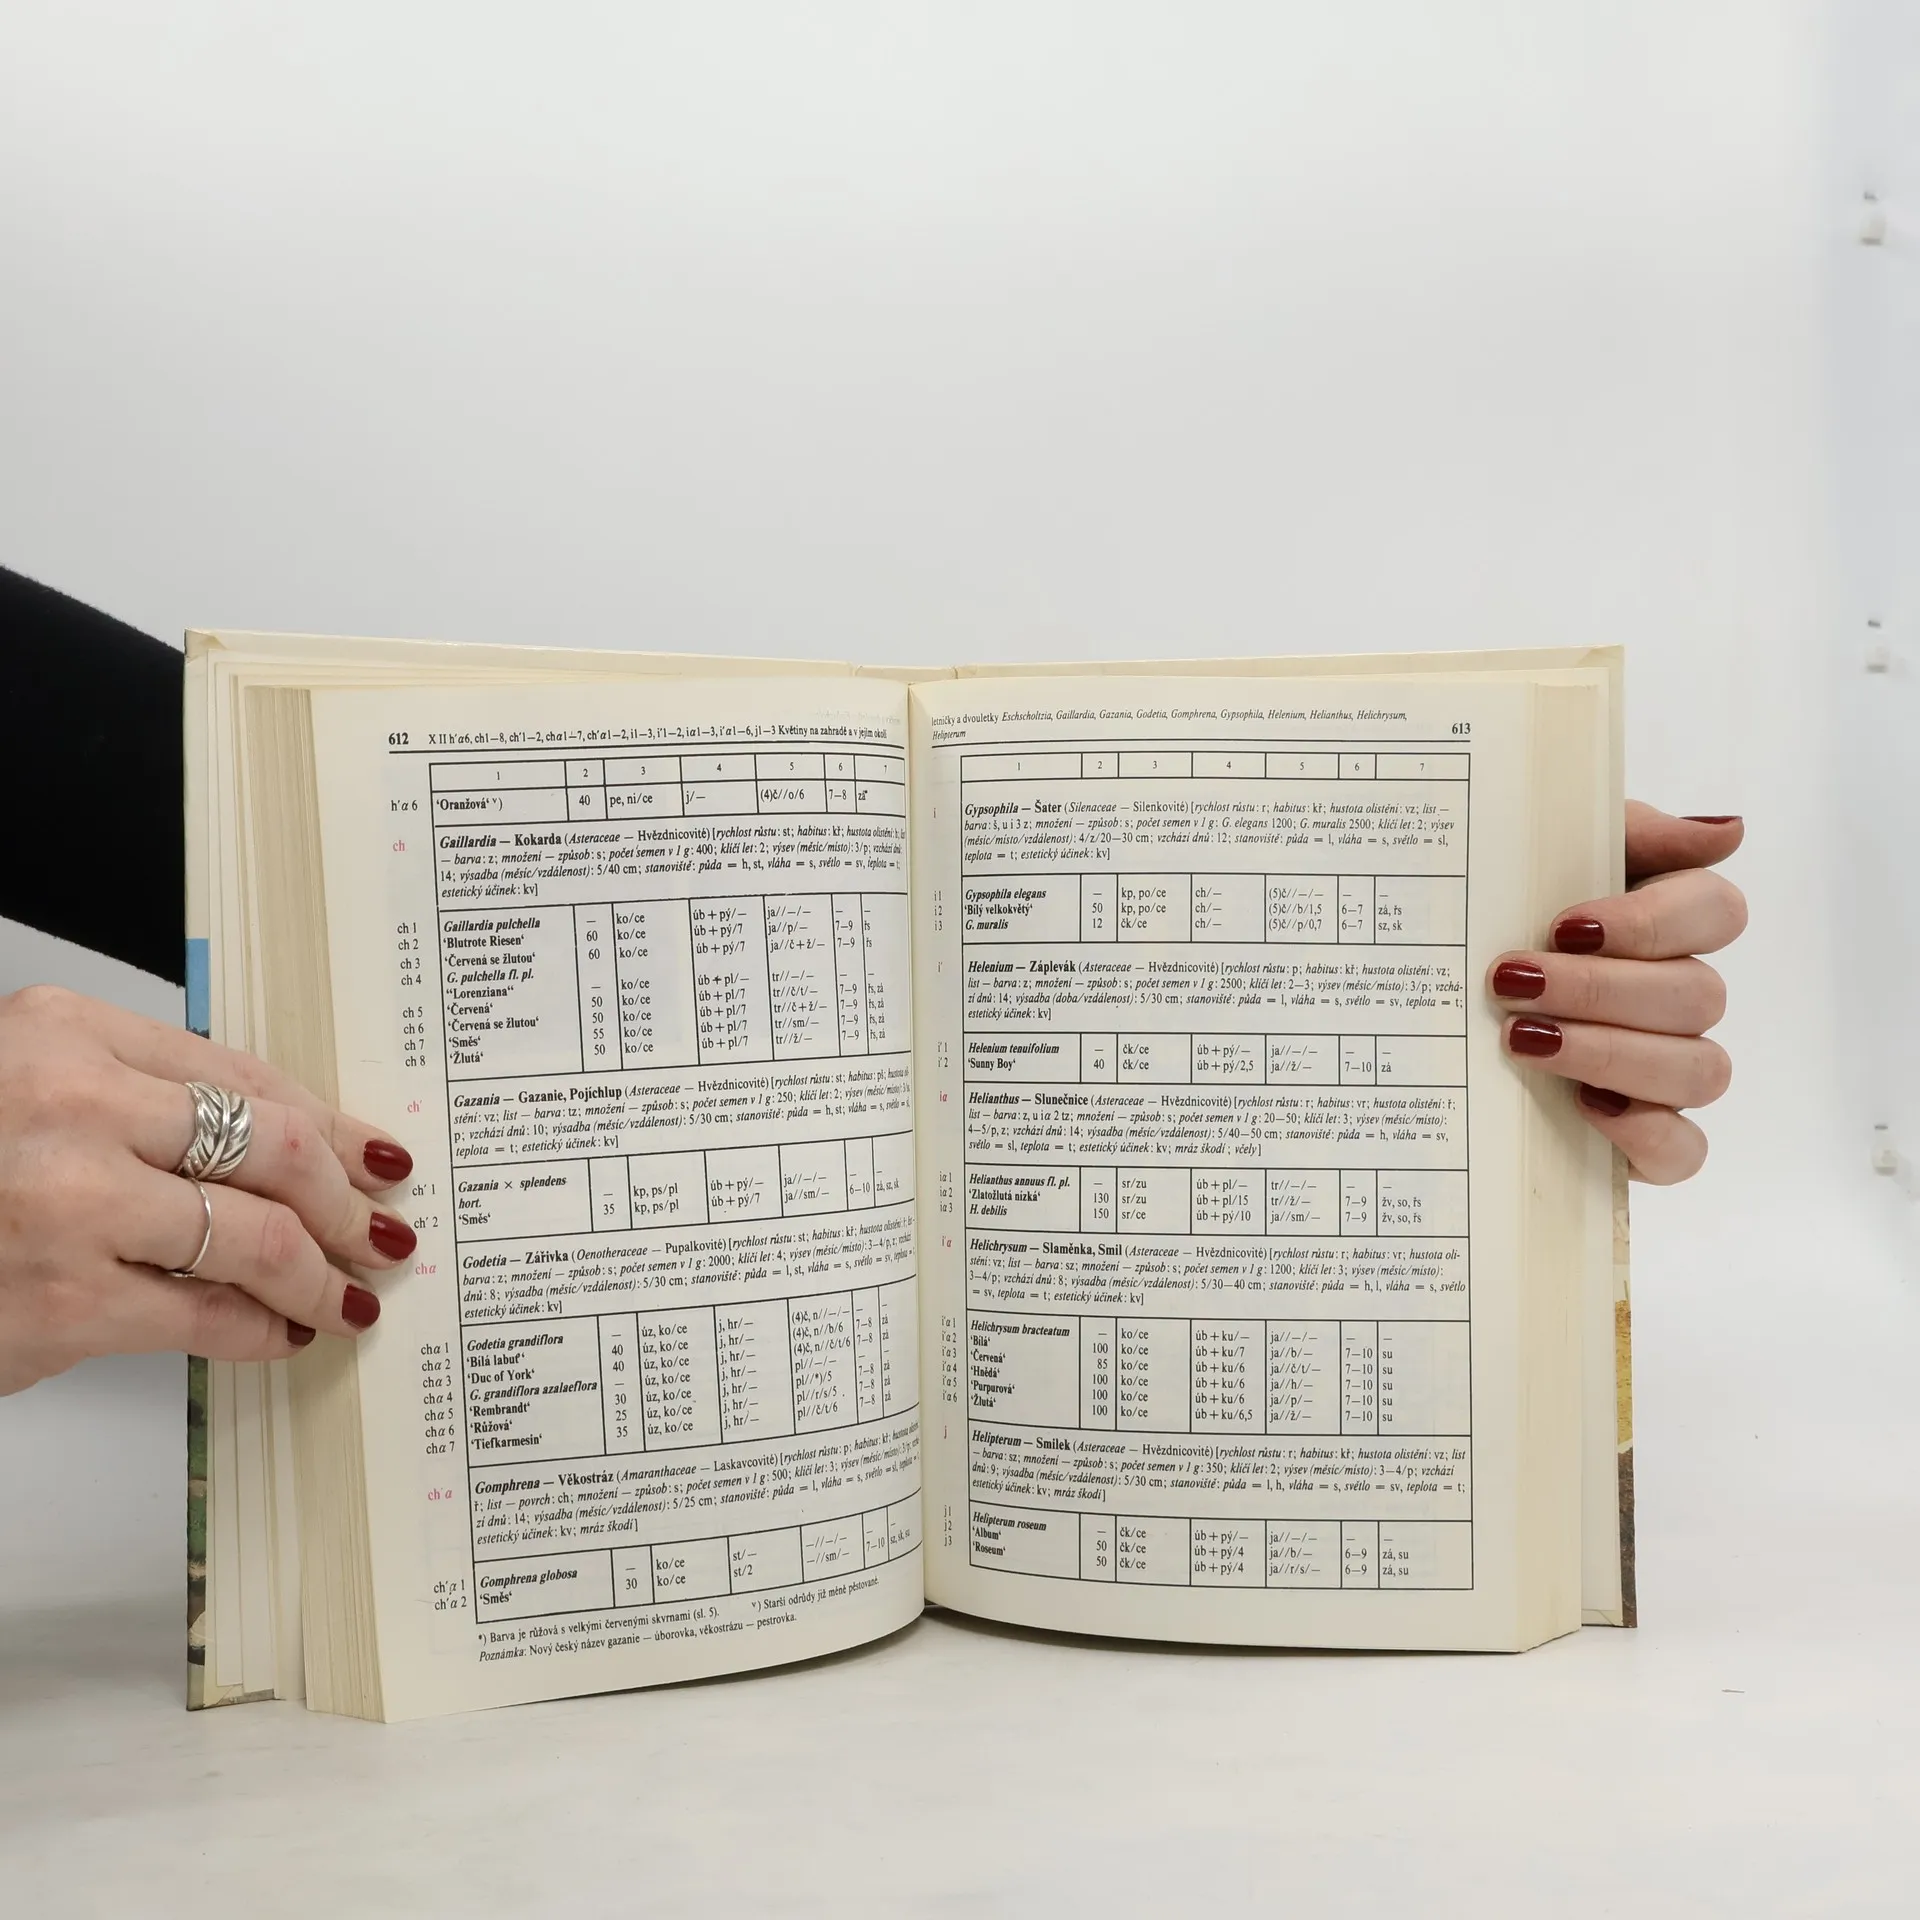 612 X II h'α6, ch1—8, ch'1—2, chα1—7, ch'α1—2, i1—3, i'1—2, iα1—3, i'α1—6, j1—3 Květiny na zahradě a v jejím okolí
1 2 3 4 5 6 7
h'α 6 ‘Oranžová‘ ᵛ) 40 pe, ni/ce j/— (4)č//o/6 7—8 zá
ch Gaillardia — Kokarda (Asteraceae — Hvězdnicovité) [rychlost růstu: st; habitus: kř; hustota olistění: ř; list
— barva: z; množení — způsob: s; počet semen v 1 g: 400; klíčí let: 2; výsev (měsíc/místo): 3/p; vzchází dnů:
14; výsadba (měsíc/vzdálenost): 5/40 cm; stanoviště: půda = h, st, vláha = s, světlo = sv, teplota = t;
estetický účinek: kv]
ch 1 Gaillardia pulchella — ko/ce úb + pý/— ja//—/— — —
ch 2 ‘Blutrote Riesen‘ 60 ko/ce úb + pý/7 ja//p/— 7—9 řs
ch 3 ‘Červená se žlutou‘ 60 ko/ce úb + pý/7 ja//č+ž/— 7—9 řs
ch 4 G. pulchella fl. pl.
“Lorenziana“ — ko/ce úb + pl/— tr//—/— — —
ch 5 ‘Červená‘ 50 ko/ce úb + pl/7 tr//č/t/— 7—9 řs, zá
ch 6 ‘Červená se žlutou‘ 50 ko/ce úb + pl/7 tr//č+ž/— 7—9 řs, zá
ch 7 ‘Směs‘ 55 ko/ce úb + pl/7 tr//sm/— 7—9 řs, zá
ch 8 ‘Žlutá‘ 50 ko/ce úb + pl/7 tr//ž/— 7—9 řs, zá
ch' Gazania — Gazanie, Pojichlup (Asteraceae — Hvězdnicovité) [rychlost růstu: st; habitus: př; hustota oli-
stění: vz; list — barva: tz; množení — způsob: s; počet semen v 1 g: 250; klíčí let: 2; výsev (měsíc/místo): 3/s,
p; vzchází dnů: 10; výsadba (měsíc/vzdálenost): 5/30 cm; stanoviště: půda = h, st; vláha = s, světlo = s,
teplota = t; estetický účinek: kv]
ch' 1 Gazania × splendens
hort. — kp, ps/pl úb + pý/— ja//—/— — —
ch' 2 ‘Směs‘ 35 kp, ps/pl úb + pý/7 ja//sm/— 6—10 zá, sz, sk
chα Godetia — Zářivka (Oenotheraceae — Pupalkovité) [rychlost růstu: st; habitus: kř; hustota olistění: ř; list —
barva: z; množení — způsob: s; počet semen v 1 g: 2000; klíčí let: 4; výsev (měsíc/místo): 3—4/p, z; vzchází
dnů: 8; výsadba (měsíc/vzdálenost): 5/30 cm; stanoviště: půda = l, st, vláha = s, světlo = sv, teplota = t;
estetický účinek: kv]
chα 1 Godetia grandiflora — úz, ko/ce j, hr/— (4)č, n//—/— — —
chα 2 ‘Bílá labuť‘ 40 úz, ko/ce j, hr/— (4)č, n//b/6 7—8 zá
chα 3 ‘Duc of York‘ 40 úz, ko/ce j, hr/— (4)č, n//č/t/6 7—8 zá
chα 4 G. grandiflora azalaeflora — úz, ko/ce j, hr/— pl//—/— — —
chα 5 ‘Rembrandt‘ 30 úz, ko/ce j, hr/— pl//*)/5 7—8 zá
chα 6 ‘Růžová‘ 25 úz, ko/ce j, hr/— pl//r/s/5 7—8 zá
chα 7 ‘Tiefkarmesin‘ 35 úz, ko/ce j, hr/— pl//č/t/6 7—8 zá
ch'α Gomphrena — Věkostráz (Amaranthaceae — Laskavcovité) [rychlost růstu: p; habitus: kř; hustota olistění:
ř; list — povrch: ch; množení — způsob: s; počet semen v 1 g: 500; klíčí let: 3; výsev (měsíc/místo): 3/p; vzchá-
zí dnů: 14; výsadba (měsíc/vzdálenost): 5/25 cm; stanoviště: půda = l, vláha = s, světlo = sl, teplota =
estetický účinek: kv; mráz škodí]
ch'α 1 Gomphrena globosa — ko/ce st/— —//—/— — —
ch'α 2 ‘Směs‘ 30 ko/ce st/2 —//sm/— 7—10 sz, sk, su
*) Barva je růžová s velkými červenými skvrnami (sl. 5). ᵛ) Starší odrůdy již méně pěstované.
Poznámka: Nový český název gazanie — úborovka, věkostrázu — pestrovka.
letničky a dvouletky Eschscholtzia, Gaillardia, Gazania, Godetia, Gomphrena, Gypsophila, Helenium, Helianthus, Helichrysum,
Helipterum 613
1 2 3 4 5 6 7
i Gypsophila — Šater (Silenaceae — Silenkovité) [rychlost růstu: r; habitus: kř; hustota olistění: vz; list —
barva: š, u i 3 z; množení — způsob: s; počet semen v 1 g: G. elegans 1200; G. muralis 2500; klíčí let: 2; výsev
(měsíc/místo/vzdálenost): 4/z/20—30 cm; vzchází dnů: 12; stanoviště: půda = l, vláha = s, světlo = sl,
teplota = t; estetický účinek: kv]
i 1 Gypsophila elegans — kp, po/ce ch/— (5)č//—/— — —
i 2 ‘Bílý velkokvětý‘ 50 kp, po/ce ch/— (5)č//b/1,5 6—7 zá, řs
i 3 G. muralis 12 čk/ce ch/— (5)č//p/0,7 6—7 sz, sk
i' Helenium — Záplevák (Asteraceae — Hvězdnicovité) [rychlost růstu: p; habitus: kř; hustota olistění: vz;
list — barva: z; množení — způsob: s; počet semen v 1 g: 2500; klíčí let: 2—3; výsev (měsíc/místo): 3/p; vzchá-
zí dnů: 14; výsadba (doba/vzdálenost): 5/30 cm; stanoviště: půda = l, vláha = s, světlo = sv, teplota = t;
estetický účinek: kv]
i' 1 Helenium tenuifolium — čk/ce úb + pý/— ja//—/— — —
i' 2 ‘Sunny Boy‘ 40 čk/ce úb + pý/2,5 ja//ž/— 7—10 zá
iα Helianthus — Slunečnice (Asteraceae — Hvězdnicovité) [rychlost růstu: r; habitus: vr; hustota olistění: ř;
list — barva: z, u iα 2 tz; množení — způsob: s; počet semen v 1 g: 20—50; klíčí let: 3; výsev (měsíc/místo):
4—5/p, z; vzchází dnů: 14; výsadba (měsíc/vzdálenost): 5/40—50 cm; stanoviště: půda = h, vláha = sv,
světlo = sl, teplota = t; estetický účinek: kv; mráz škodí; včely]
iα 1 Helianthus annuus fl. pl. — sr/zu úb + pl/— tr//—/— — —
iα 2 ‘Zlatožlutá nízká‘ 130 sr/zu úb + pl/15 tr//ž/— 7—9 žv, so, řs
iα 3 H. debilis 150 sr/ce úb + pý/10 ja//sm/— 7—9 žv, so, řs
i'α Helichrysum — Slaměnka, Smil (Asteraceae — Hvězdnicovité) [rychlost růstu: r; habitus: vr; hustota oli-
stění: vz; list — barva: sz; množení — způsob: s; počet semen v 1 g: 1200; klíčí let: 3; výsev (měsíc/místo):
3—4/p; vzchází dnů: 8; výsadba (měsíc/vzdálenost): 5/30—40 cm; stanoviště: půda = h, l, vláha = s, světlo
= sv, teplota = t; estetický účinek: kv]
i'α 1 Helichrysum bracteatum — ko/ce úb + ku/— ja//—/— — —
i'α 2 ‘Bílá‘ 100 ko/ce úb + ku/7 ja//b/— 7—10 su
i'α 3 ‘Červená‘ 85 ko/ce úb + ku/6 ja//č/t/— 7—10 su
i'α 4 ‘Hnědá‘ 100 ko/ce úb + ku/6 ja//h/— 7—10 su
i'α 5 ‘Purpurová‘ 100 ko/ce úb + ku/6 ja//p/— 7—10 su
i'α 6 ‘Žlutá‘ 100 ko/ce úb + ku/6,5 ja//ž/— 7—10 su
j Helipterum — Smilek (Asteraceae — Hvězdnicovité) [rychlost růstu: r; habitus: kř; hustota olistění: vz; list
— barva: sz; množení — způsob: s; počet semen v 1 g: 350; klíčí let: 2; výsev (měsíc/místo): 3—4/p; vzchází
dnů: 9; výsadba (měsíc/vzdálenost): 5/30 cm; stanoviště: půda = l, h, vláha = s, světlo = sv, teplota = t;
estetický účinek: kv; mráz škodí]
j 1 Helipterum roseum — čk/ce úb + pý/— ja//—/— — —
j 2 ‘Album‘ 50 čk/ce úb + pý/4 ja//b/— 6—9 zá, su
j 3 ‘Roseum‘ 50 čk/ce úb + pý/4 ja//r/s/— 6—9 zá, su